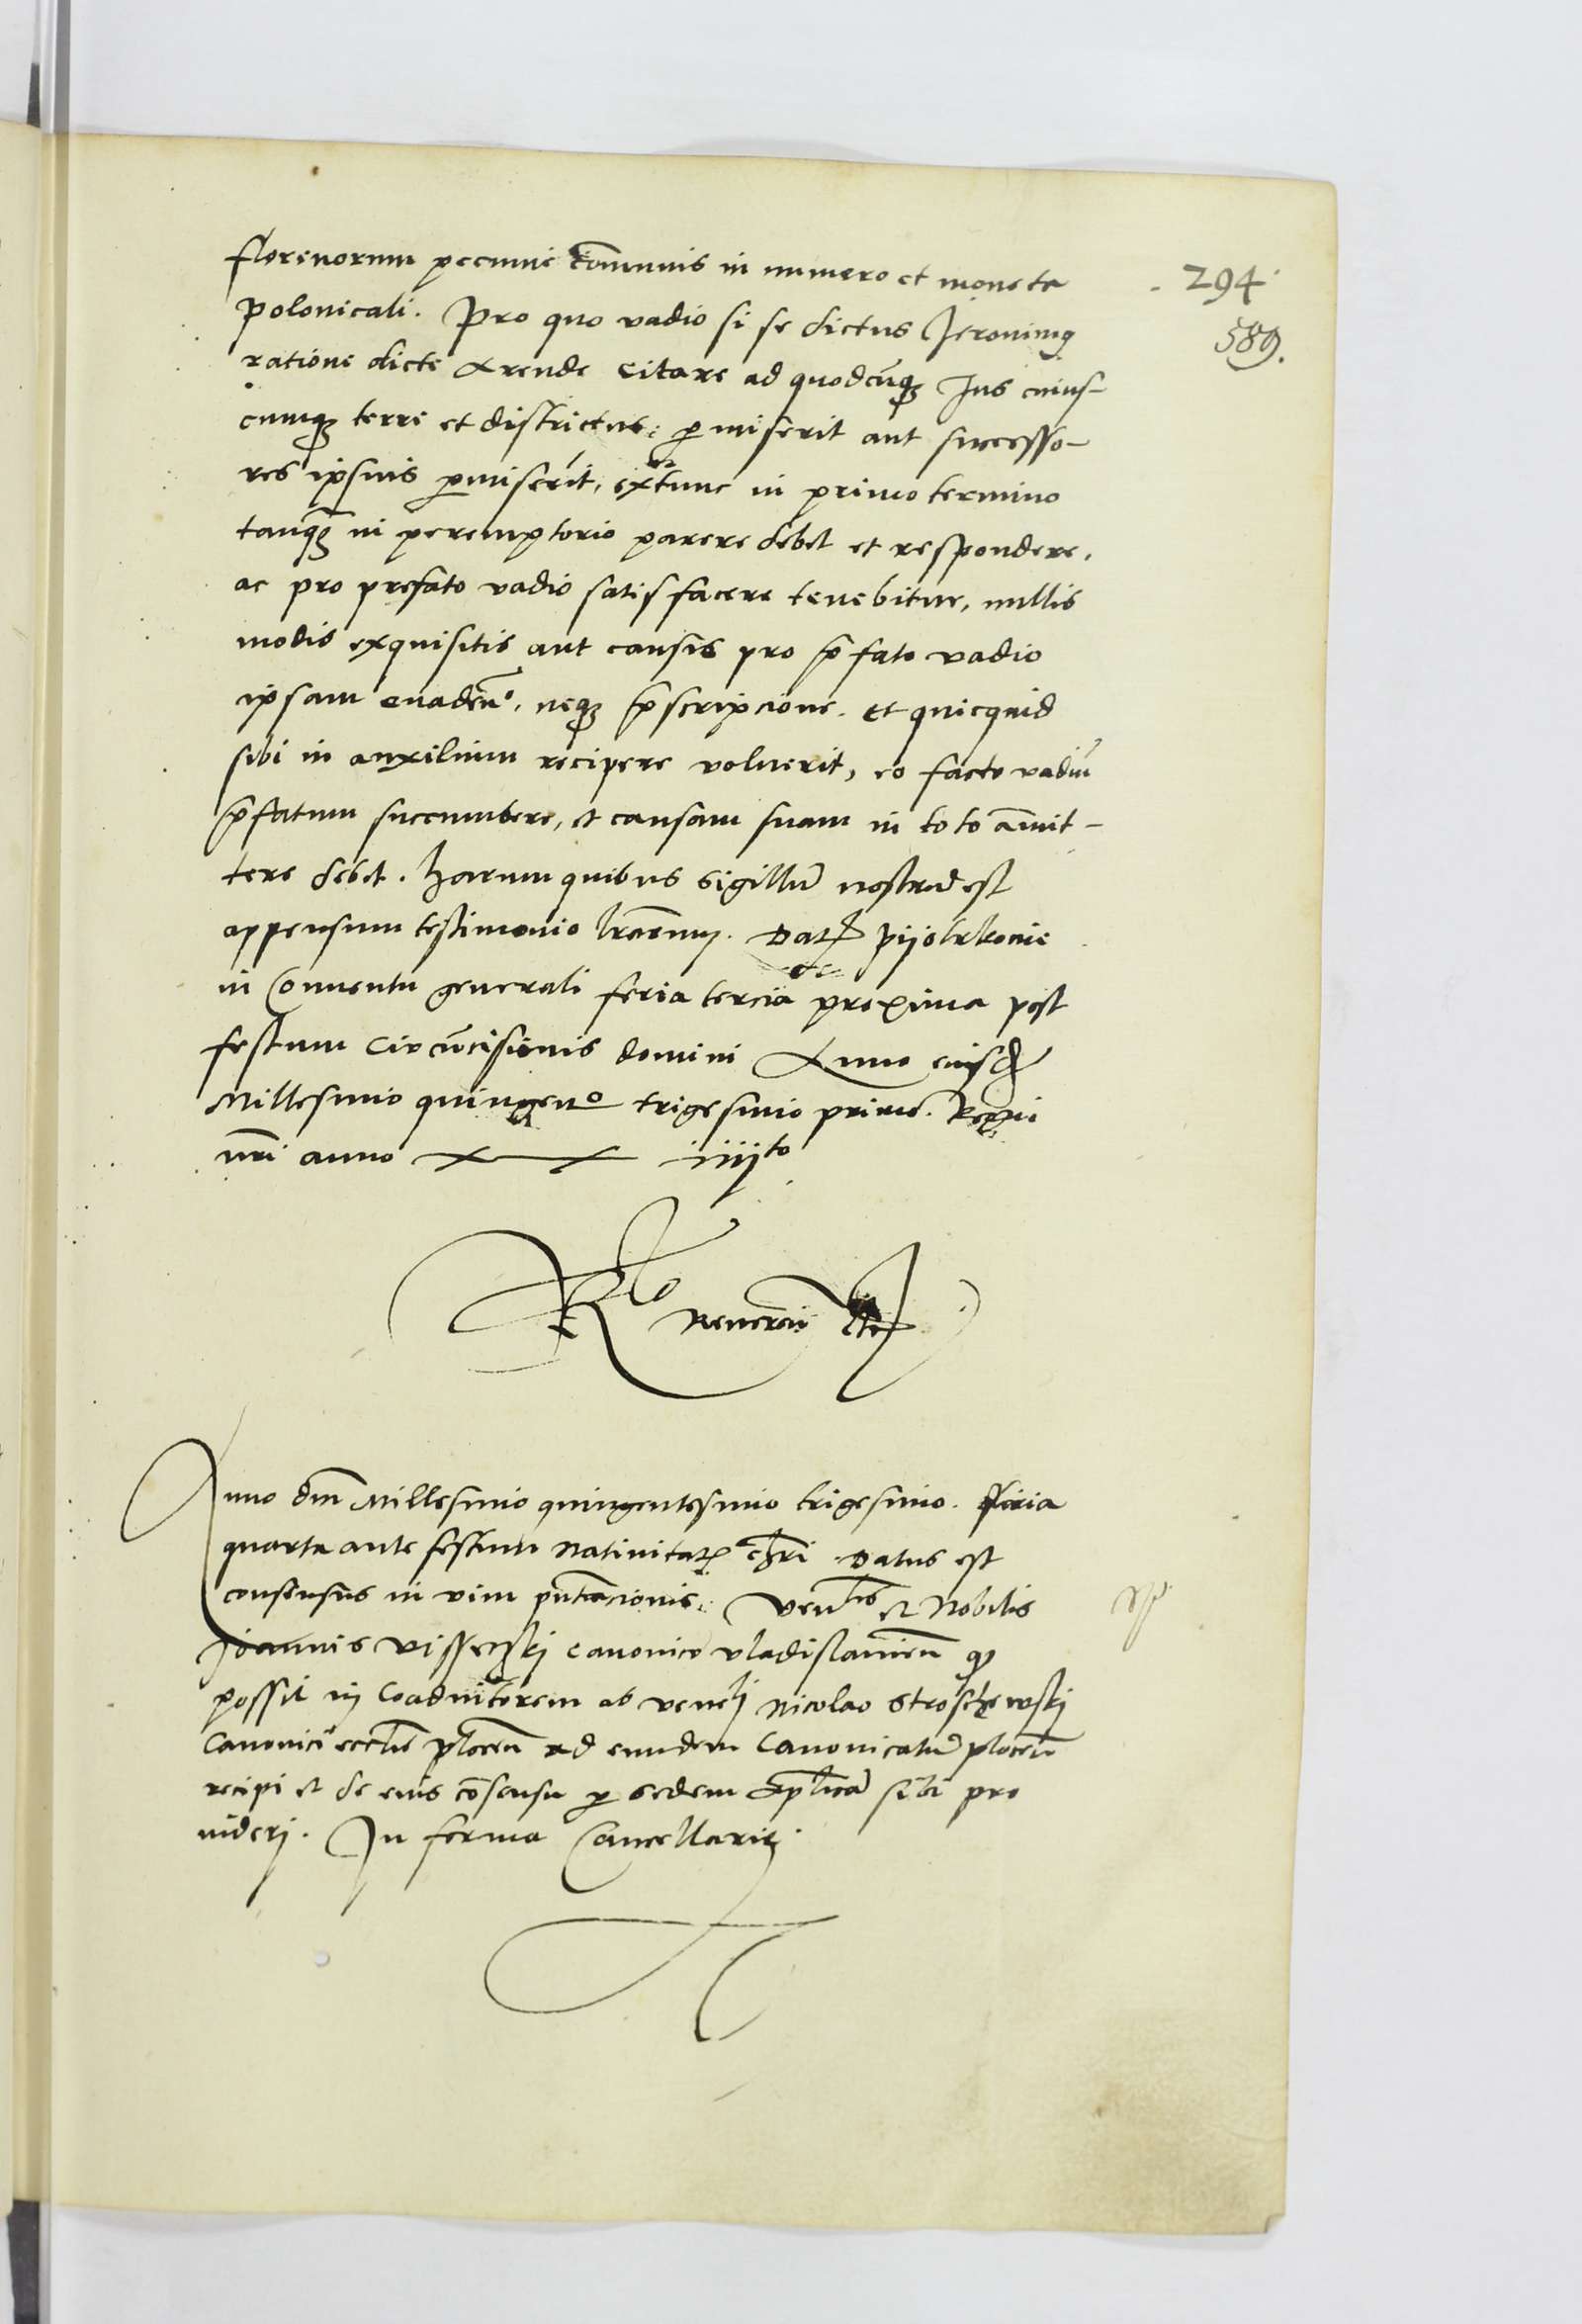 florenorum pecunie co͞munis in numero et moneta
294
polonicali. Pro quo vadio si se dictus Jeronimꝰ
589.
ratione dicte Arende citare ad quodcu͞qꝫ Jus cuius-
cumqꝫ terre et districtus: ꝑmiserit aut successo-
res ipsius ꝑmiserit, extunc in primo termino
tanqꝫ in peremptorio parere debet et respondere.
ac pro prefato vadio satisfacere tenebitur, nullis
modis exquisitis aut causis pro p͞fato vadio
ipsam euaden͞º, neqꝫ p͞scripcione. Et quicquid
sibi in auxilium recipere voluerit, eo facto vadiu͞
p͞fatum succumbere, et causam suam in toto a͞mit-
tere debet. Harum quibus sigillu͞ nostru͞ est
appensum testimonio l͞rarum. Dat͞ Pijotrkouie
in Conuentu generali feria tercia proxima post
festum Circu͞cisionis domini Anno eiusd͞
Millesimo quingenº trigesimo primo. Regni
nr͞i anno iiijto
Rlo Reueren͞
Anno dn͞i Millesimo quingentesimo trigesimo. Feria
quarta ante festum Natiuitat͞ chr͞i Datus est
consensus in vim pn͞tacionis. Ven͞lis et Nobilis
Joannis canonico vladislauien͞ qꝫ
possit in Coadiutorem ab venel͞j Nicolao Stroschewskj
Canonici eccl͞ie plocen͞ ad eundem Canonicatu͞ plocen͞
recipi et de eius co͞sensu ꝑ sedem Ap͞licã sibi pro
uiderj. In forma Cancellarię.